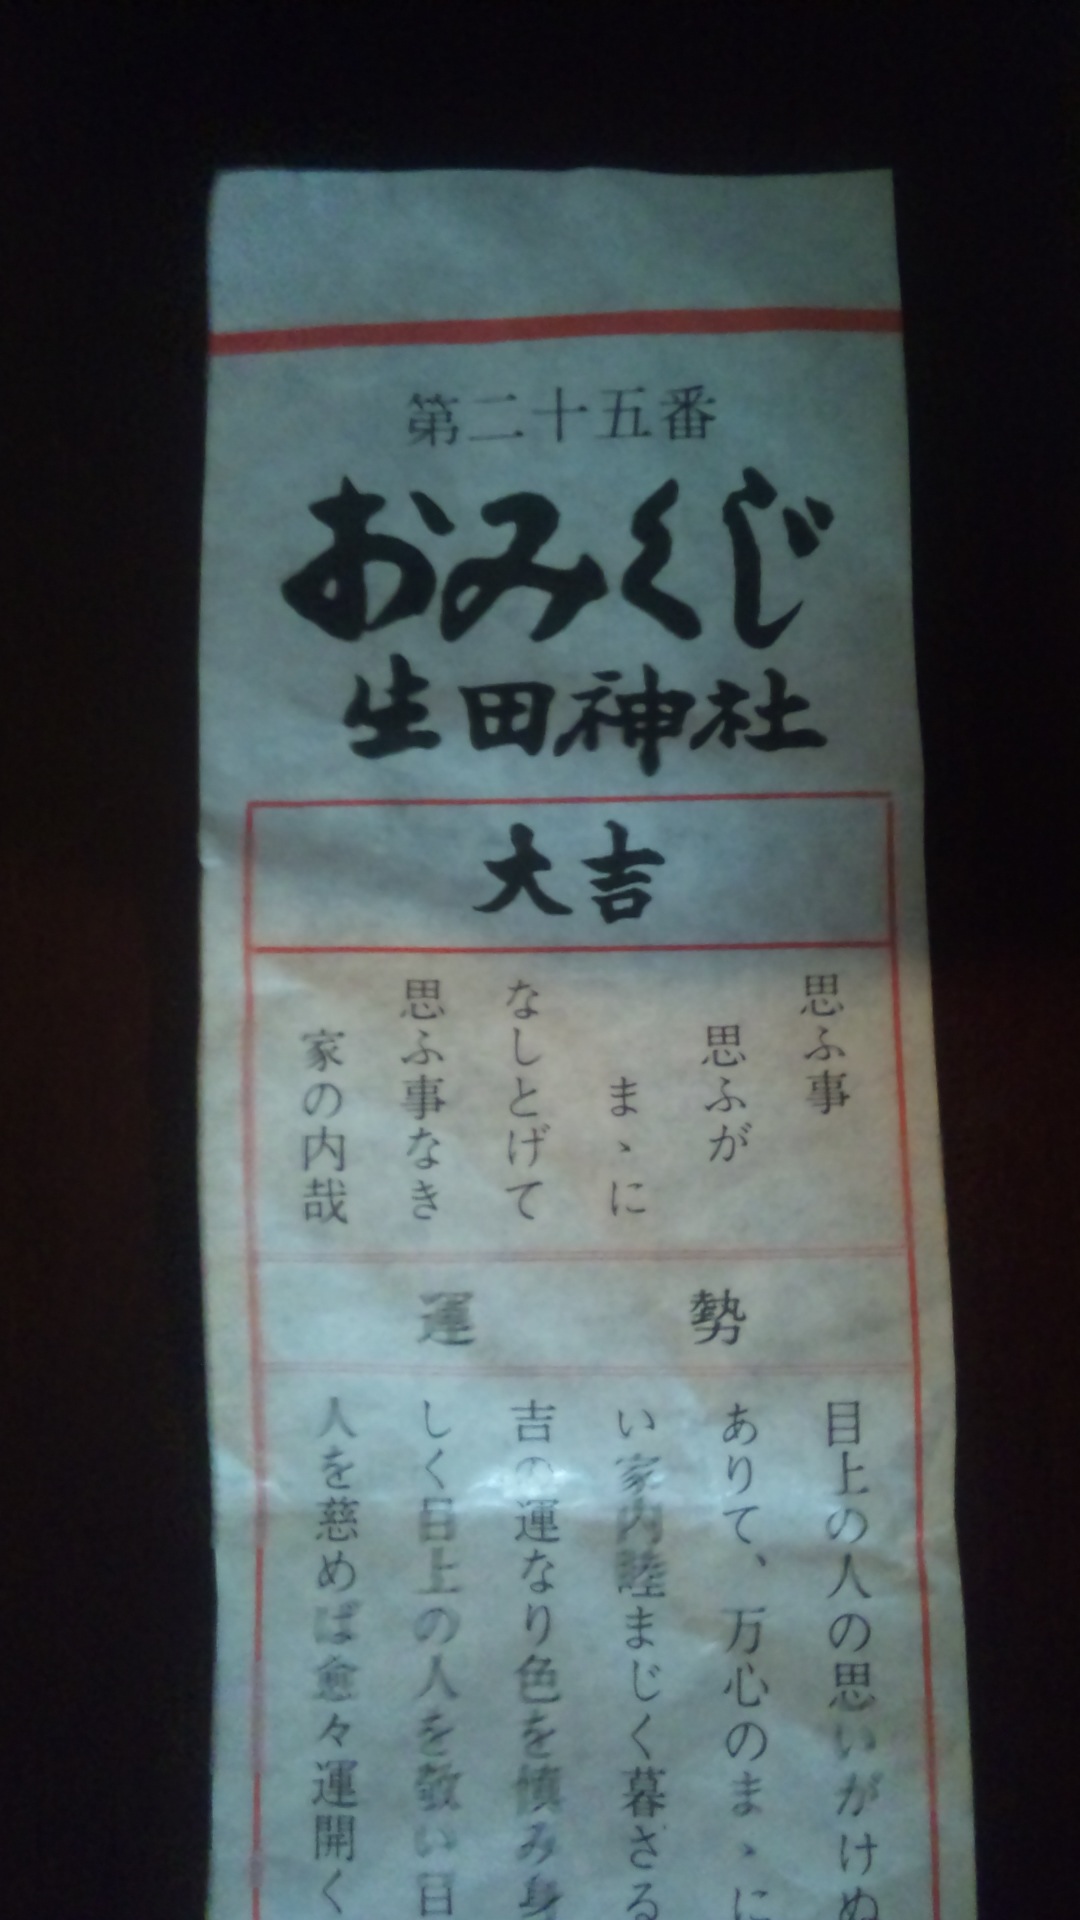 第二十五番
おみくじ
生田神社
大吉
思ふ事
思ふが
まゝに
なしとげて
思ふ事なき
家の内哉
運勢
目上の人の思いがけぬ
ありて、万心のまゝに
い家内睦まじく暮ざる
吉の運なり色を慎み身
しく目上の人を敬い目
人を慈めば愈々運開く